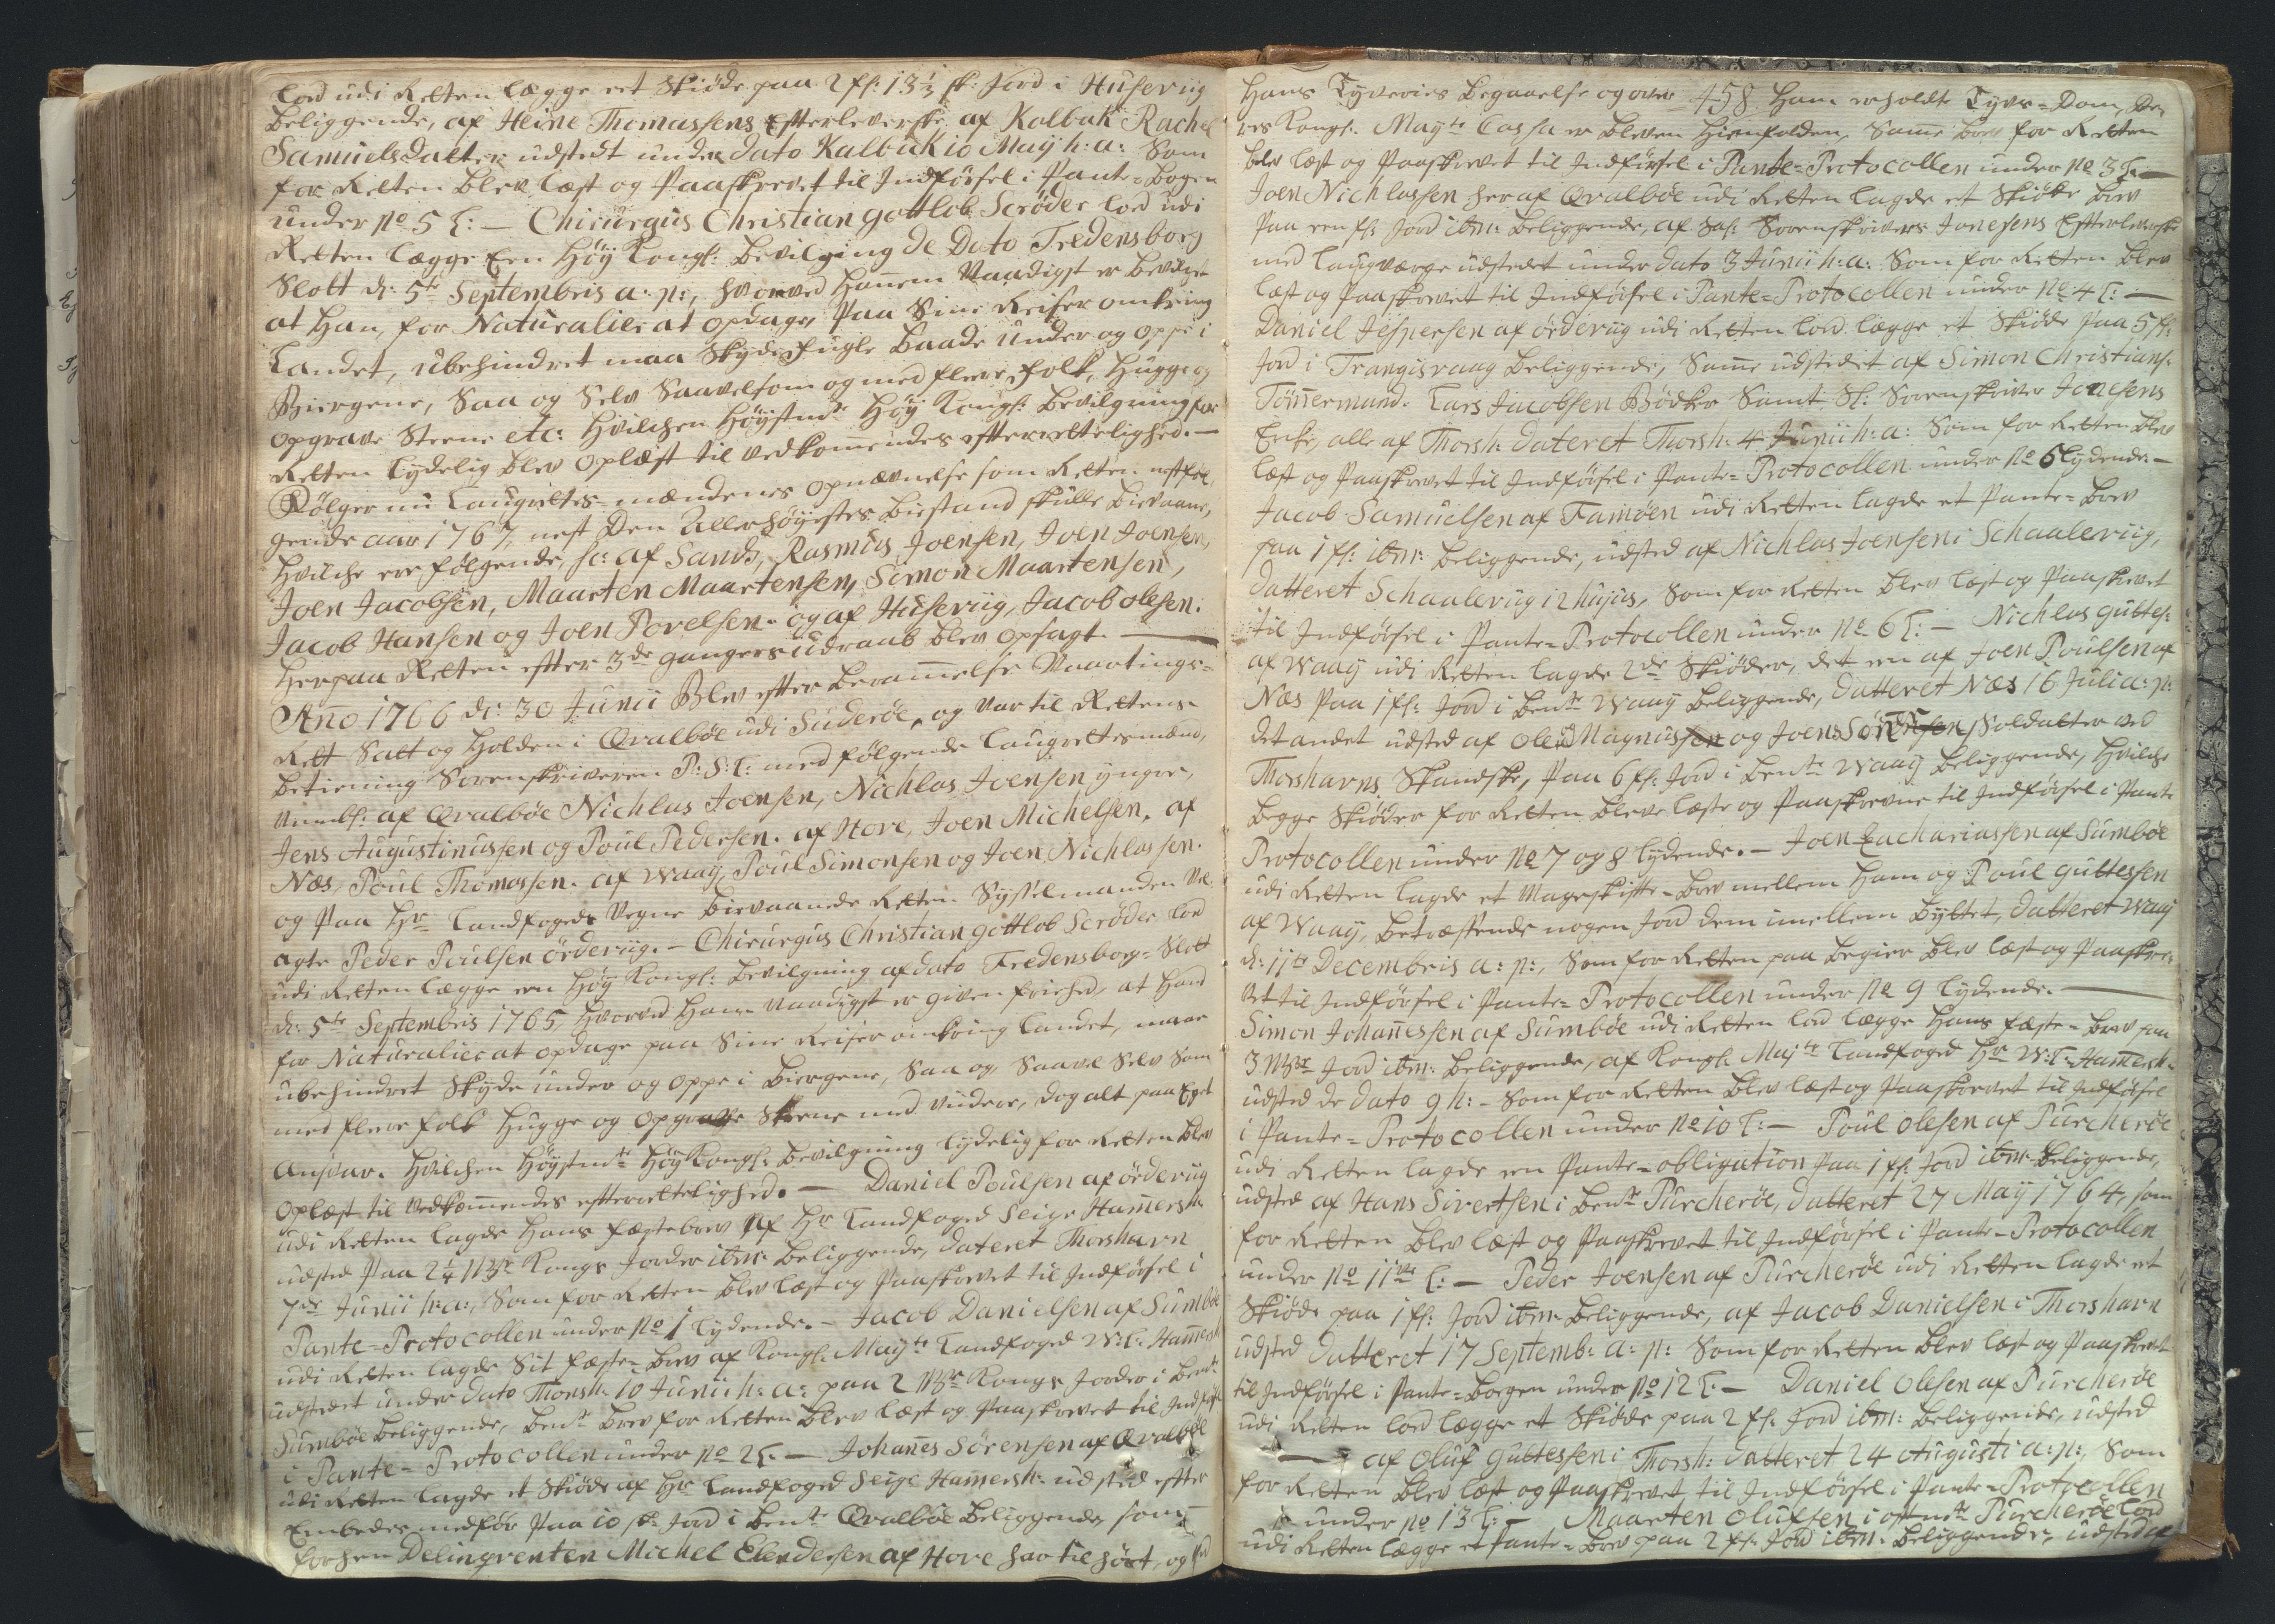 lod udi Retten lægge eet Skiöde paa 2 fs: 13½ sk: Jord i Huserüg
beliggende, af Heine Thomassens Efterleverske af Kalbak Rachel
Samuelsdatter udstedt under dato Kalbak 10 Maÿ h: a: Som
for Retten blev læst og Paaskrevet til Indförsel i Pante-Bogen
under No 5 L: — Chirurgus Christian Gottlob Scröder lod udi
Retten lægge Een Höÿ Kongl: Bevilgning De Dato Fredensborg
Slott d: 5te Septembris a: p:, hvorved hannem Naadigst er bevilget
at Han, for Naturalier at opdage, Paa Sine Reiser omkring
Landet, ubehindret maa Skyde Fugle baade under og oppe i
Biergene, Saa og Selv Saavelsom og med flere Folk, Hugge og
opgrave Steene etc: Hvilchen Höÿstmte Höÿ Kongl: Bevilgning for
Retten lydelig blev oplæst til vedkommendes efterrettelighed. —
Fölger nu Laugrettes-mændenes opnævnelse som Retten nestföl,
gende aar 1767, nest Den Allerhöÿestes bistand skulle bievaane,
hvilche ere fölgende, sc: af Sands, Rasmus Joensen, Joen Joensen,
Joen Jacobsen, Maarten Maartensen, Simon Maartensen,
Jacob Hansen og Joen Povelsen. og af Huserüg, Jacob Olesen.
Herpaa Retten efter 3de gangers udraab blev opsagt. —
Anno 1766 d: 30 Junii Blev efter berammelse Vaartings-
Rett Satt og holden i Qvalböe udi Suderöe, og var til Rettens
betiening Sorenskriveren P: S: L: med fölgende Laugrettesmænd,
Navnl: af Qvalböe Nichlas Joensen, Nichlas Joensen ÿngre,
Jens Augustinussen og Poul Pedersen. af Hove, Joen Michelsen. af
Næs, Poul Thomassen. af Waaÿ, Poul Simonsen og Joen Nichlassen.
og Paa Hr Landfogeds Vegne bievaanede Retten Sysselmanden Vel
agte Peder Poulsen Örderüg. — Chirurgus Christian Gottlob Scröder lod
udi Retten lægge een Höÿ Kongl: Bevilgning af dato Fredensborg-Slott
d: 5te Septembris 1765, hvorved Ham Naadigst er given friehed, at Hand
for Naturalier at opdage paa Sine Reiser omkring Landet, maae
ubehindret Skyde under og oppe i Biergene, Saa og, Saavel Selv Som
med flere folk Hugge og opgrave Steene med viidere, dog alt paa Eget
Ansvar. Hvilchen Höÿstmte Höÿ Kongl: Bevilgning lydelig for Retten blev
oplæst til vedkommendes efterrettelighed. — Daniel Poulsen af Örderüg
udi Retten lagde Hans Fæstebrev Af Hr Landfoged Seigr Hammersh:
udsted Paa 2¼ Mkr Kongs Jorder ibm: beliggende, dateret Thorshavn
7de Junii h: a:, Som for Retten blev læst og Paaskrevet til Indförsel i
Pante-Protocollen under No 1 lydende. — Jacob Danielsen af Sumböe
udi Retten lagde Sit Fæste-brev af Kongl: Maÿts Landfoged W: L: Hammersh
udstedet under dato Thorsh: 10 Junii h: a: paa 2 Mkr Kongs Jorder i bente
Sumböe beliggende, bente brev for Retten blev læst og Paaskrevet til Indförsel
i Pante-Protocollen under No 2 L: — Johannes Sörensen af Qvalböe
udi Retten lagde et Skiöde af Hr Landfoged Seigr Hammersh: udsted efter
Embedes medför Paa 10 sk: Jord i bente Qvalböe beliggende, som
forhen Delinqventen Michel Elendersen af Hove har tilhört, og ved
Hans Tyveries begaaelse og over 458 Ham erholdte Tyvs-Dom, De-
res Kongl: Maÿts Cassa er bleven hiemfalden, Samme brev for Retten
blev læst og Paaskrevet til Indförsel i Pante-Protocollen under No 3 L: —
Joen Nichlassen her af Qvalböe udi Retten lagde et Skiöde brev
Paa een fs: Jord ibm: beliggende, af Sal: Sorenskrivers Jonesens Efterleverske
med Laugværge udstedet under dato 3 Junii h: a: Som for Retten blev
læst og Paaskrevet til Indförsel i Pante-Protocollen under No 4 L: —
Daniel Jespersen af Örderüg udi Retten lod lægge et Skiöde paa 5 fs:
Jord i Trangisvaag beliggende, Samme udstedet af Simon Christians:
Tömmermand. Lars Jacobsen Bödker Samt Sl: Sorenskriver Jonesens
Enke, alle af Thorsh: dateret Thorsh: 4 Junii h: a: Som for Retten blev
læst og Paaskrevet til Indförsel i Pante-Protocollen under No 5 lydende —
Jacob Samuelsen af Famöen udi Retten lagde et Pante-brev
paa 1 fs: ibm: beliggende, udsted af Nichlas Joensen i Schaalerüg,
datteret Schaalerüg 12 hujus, Som for Retten blev læst og Paaskrevet
til Indförsel i Pante-Protocollen under No 6 L: — Nichlas Guttes:
af Waaÿ udi Retten lagde 2de Skiöder, det een af Joen Poulsen af
Næs Paa 1 fs: Jord i bente Waaÿ beliggende, datteret Næs 16 Juli a: p:
det andet udsted af Ole Magnussen og Joen Sörensen, Soldatter ved
Thorshavns Skandse, Paa 6 fs: Jord i bente Waaÿ beliggende, Hvilche
begge Skiöder for Retten bleve læste og Paaskrevne til Indförsel i Pante
Protocollen under No 7 og 8 lydende. — Joen Zachariassen af Sumböe
udi Retten lagde et Mageskifte-brev mellem Ham og Poul Guttessen
af Waaÿ, betræffende nogen Jord dem imellem byttet, datteret Waaÿ
d: 11te Decembris a: p:, Som for Retten paa begier blev læst og Paaskre-
vet til Indförsel i Pante-Protocollen under No 9 lydende. —
Simon Johannessen af Sumböe udi Retten lod lægge Hans fæste-brev paa
3 Mkr Jord ibm: beliggende, af Kongl: Majts Landfoged Hr W: L: Hammersh:
udsted de dato 9 h: — Som for Retten blev læst og Paaskrevet til Indförsel
i Pante-Protocollen under No 10 L: — Poul Olesen af Purcheröe
udi Retten lagde en Pante-obligation Paa 1 fs: Jord ibm: beliggende,
udsted af Hans Sivertsen i bente Purcheröe, datteret 27 Maÿ 1764, som
for Retten blev læst og Paaskrevet til Indförsel i Pante-Protocollen
under No 11te L: — Peder Joensen af Purcheröe udi Retten lagde et
Skiöde paa 1 fs: Jord ibm: beliggende, af Jacob Danielsen i Thorshavn
udsted datteret 17 Septemb: a: p: Som for Retten blev læst og Paaskrevet
til Indförsel i Pante-Bogen under No 12 L: — Daniel Olesen af Purcheröe
udi Retten lod lægge et Skiöde paa 2 fs: Jord ibm: beliggende, udsted
— af Oluf Guttessen i Thorsh: datteret 24 Augusti a: p:, Som
for Retten blev læst og Paaskrevet til Indförsel i Pante-Protocollen
under No 13 L: — Maarten Olufsen i oftmte Purcheröe lod
udi Retten lægge et Pante-brev paa 2 fs: Jord ibm: beliggende, udsted af